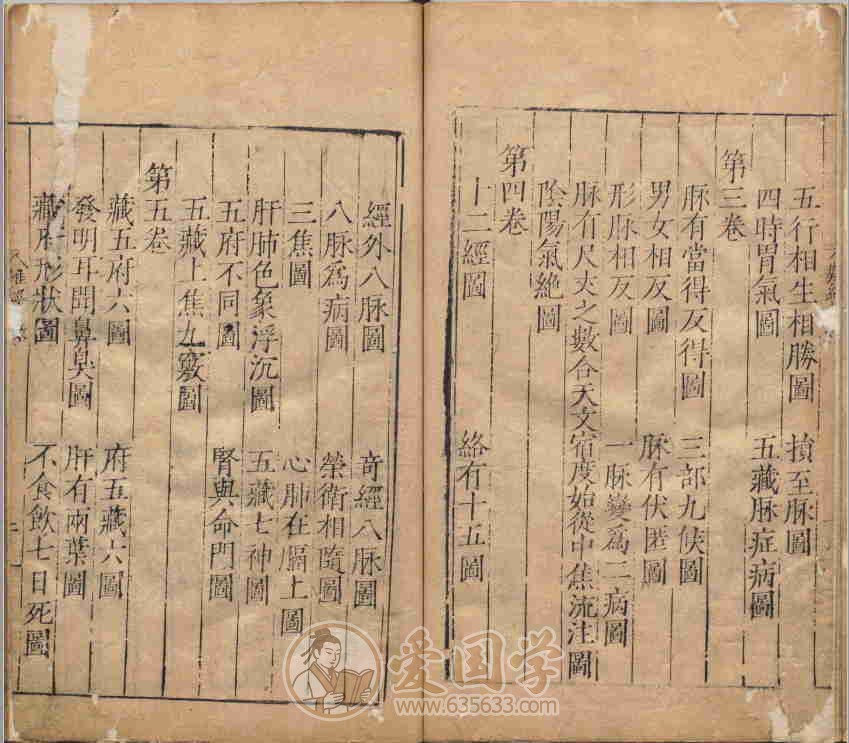 五行相生相勝圖 損至脉圖
四時胃氣圖 五藏脉症病圖
第三卷
脉有當得反得圖 三部九候圖
男女相反圖 脉有伏匿圖
形脉相反圖 一脉變爲二病圖
脉有尺寸之數合天文宿度始從中焦流注圖
陰陽氣絶圖
第四卷
十二經圖 絡有十五圖
經外八脉圖 奇經八脉圖
八脉爲病圖 榮衛相隨圖
三焦圖 心肺在膈上圖
肝肺色象浮沉圖 五藏七神圖
五府不同圖 腎與命門圖
五藏上焦九竅圖
第五卷
藏五府六圖 府五藏六圖
發明耳聞鼻臭圖 肝有兩葉圖
藏府形狀圖 不食飲七日死圖
爱国学
www.635633.com